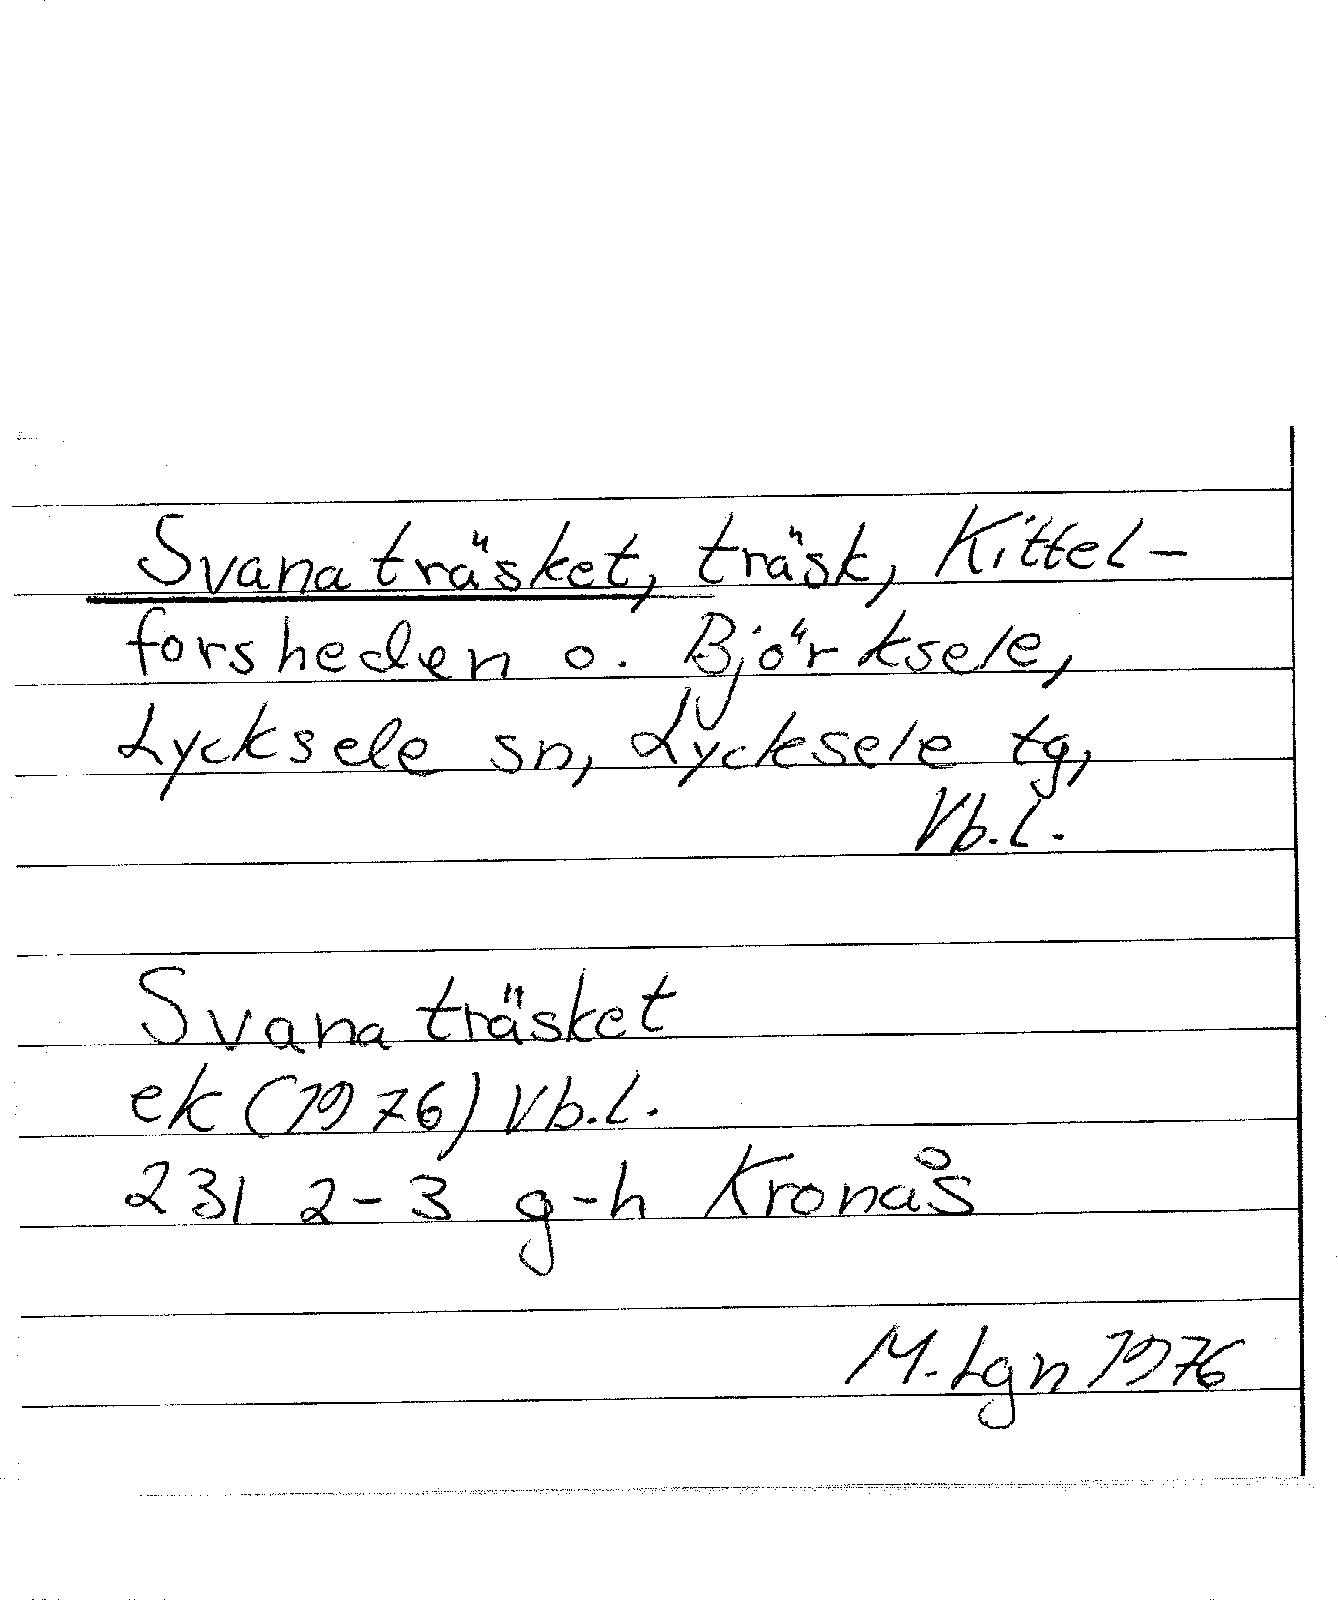 Svanaträsket, träsk, Kittel-
forsheden o. Björksele,
Lycksele sn, Lycksele tg,
Vb.l.
Svanaträsket
ek (1976) Vb.l.
231 2-3 g-h Kronås
M. Lgn 1976